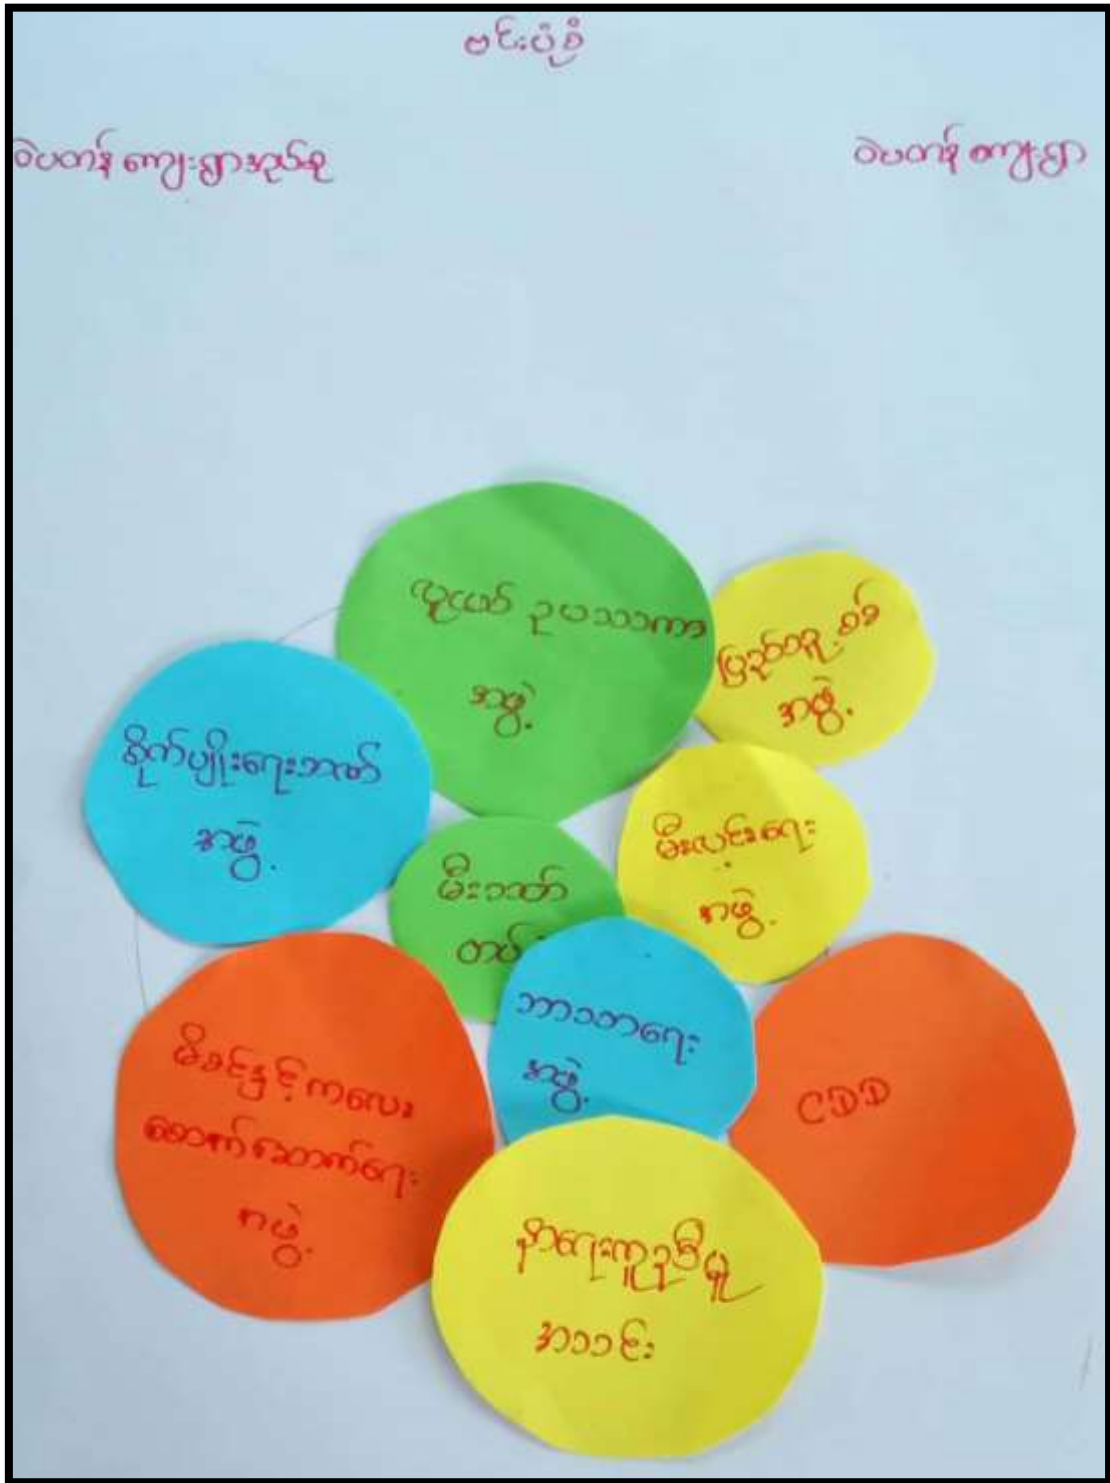 ဗင်းပုံစံ
ဝဲပတန် ကျေးရွာအုပ်စု
ဝဲပတန် ကျေးရွာ
လူငယ် ဥပဿကာ
အဖွဲ့
ပြည်သူ့စစ်
အဖွဲ့
စိုက်ပျိုးရေးဘဏ်
အဖွဲ့
မီးလင်းရေး
အဖွဲ့
မီးသတ်
တပ်
ဘာသာရေး
အဖွဲ့
မိခင်နှင့်ကလေး
စောင့်ရှောက်ရေး
အဖွဲ့
CDD
နာရေးကူညီမှု
အသင်း